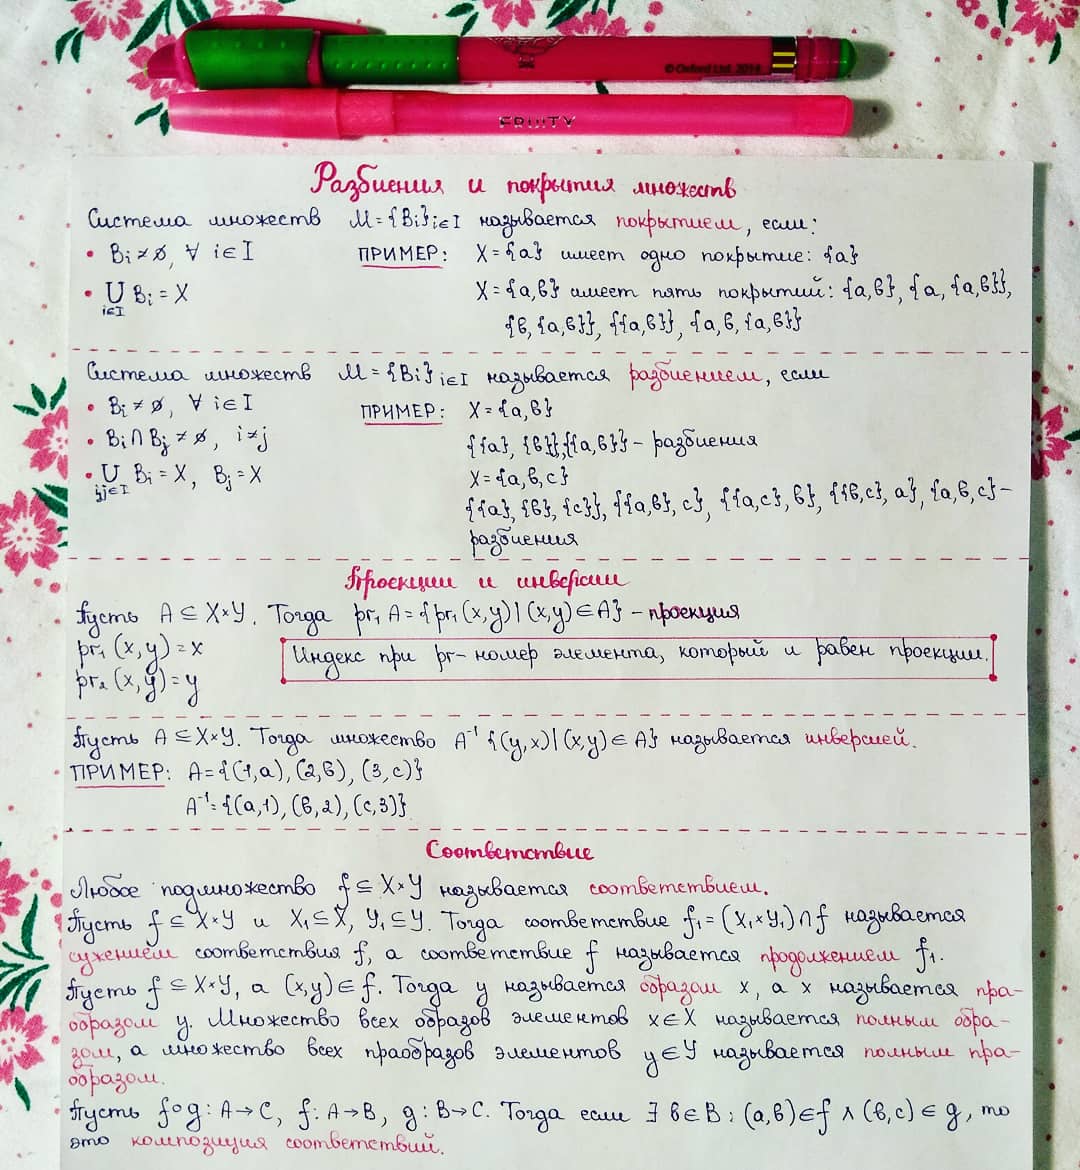 © Oxford Ltd. 2014
FRUITY
Разбиения и покрытия множеств
Система множеств M = {Bi}i∈I называется покрытием, если:
• Bi ≠ ∅, ∀ i∈I ПРИМЕР: X = {a} имеет одно покрытие: {a}
• ⋃i∈I Bi = X X = {a,b} имеет пять покрытий: {a,b}, {a, {a,b}},
{b, {a,b}}, {{a,b}}, {a, b, {a,b}}
Система множеств M = {Bi}i∈I называется разбиением, если
• Bi ≠ ∅, ∀ i∈I ПРИМЕР: X = {a,b}
• Bi ∩ Bj ≠ ∅, i≠j {{a}, {b}},{{a,b}} – разбиения
• ⋃ij∈I Bi = X, Bj = X X = {a,b,c}
{{a}, {b}, {c}}, {{a,b}, c}, {{a,c}, b}, {{b,c}, a}, {a,b,c} –
разбиения
Проекции и инверсии
Пусть A ⊆ X×Y. Тогда pr₁ A = {pr₁ (x,y) | (x,y) ∈ A} – проекция
pr₁ (x,y) = x
Индекс при pr – номер элемента, который и равен проекции.
pr₂ (x,y) = y
Пусть A ⊆ X×Y. Тогда множество A⁻¹ {(y,x) | (x,y) ∈ A} называется инверсией.
ПРИМЕР: A = {(1,a), (2,b), (3,c)}
A⁻¹ = {(a,1), (b,2), (c,3)}
Соответствие
Любое подмножество f ⊆ X×Y называется соответствием.
Пусть f ⊆ X×Y и X₁ ⊆ X, Y₁ ⊆ Y. Тогда соответствие f₁ = (X₁×Y₁) ∩ f называется
сужением соответствия f, а соответствие f называется продолжением f₁.
Пусть f ⊆ X×Y, а (x,y) ∈ f. Тогда y называется образом x, а x называется пра-
образом y. Множество всех образов элементов x∈X называется полным обра-
зом, а множество всех праобразов элементов y∈Y называется полным пра-
образом.
Пусть f∘g: A→C, f: A→B, g: B→C. Тогда если ∃ b∈B: (a,b)∈f ∧ (b,c)∈g, то
это композиция соответствий.